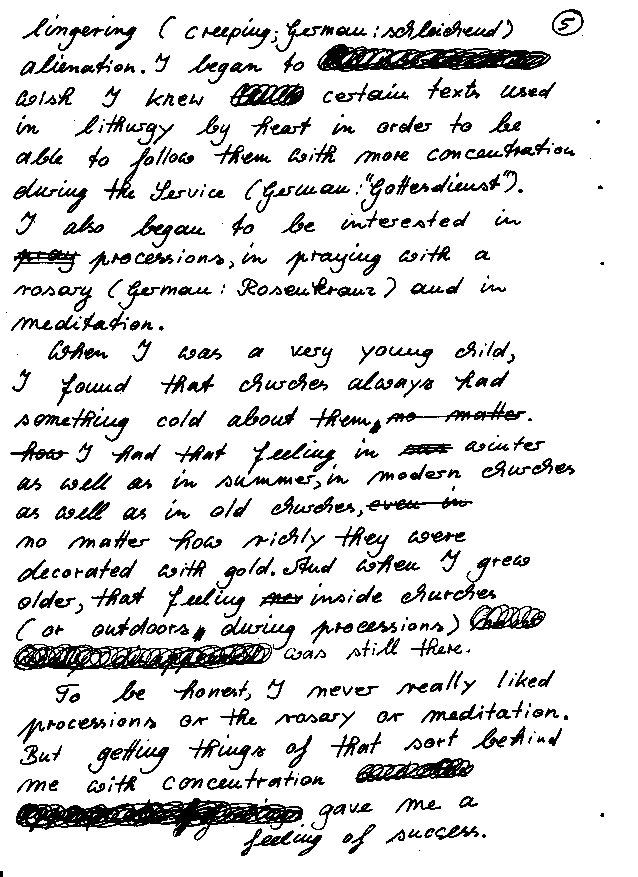 lingering (creeping; German: schleichend) 5
alienation. I began to
wish I knew certain texts used
in lithurgy by heart in order to be
able to follow them with more concentration
during the Service (German: "Gottesdienst").
I also began to be interested in
pray processions, in praying with a
rosary (German: Rosenkranz) and in
meditation.
When I was a very young child,
I found that churches always had
something cold about them, no matter.
how I had that feeling in winter
as well as in summer, in modern churches
as well as in old churches, even in
no matter how richly they were
decorated with gold. And when I grew
older, that feeling inside churches
(or outdoors, during processions)
was still there.
To be honest, I never really liked
processions or the rosary or meditation.
But getting things of that sort behind
me with concentration
gave me a
feeling of success.